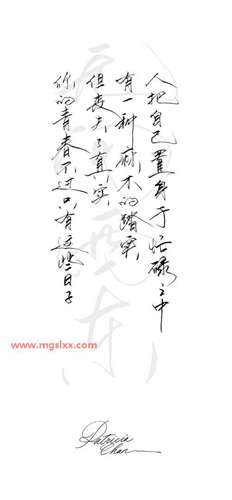 人把自己置身于忙碌之中
有一种麻木的踏实
但丧失了真实
你的青春不过只有这些日子
www.mgslxx.com
Patricia
Chan